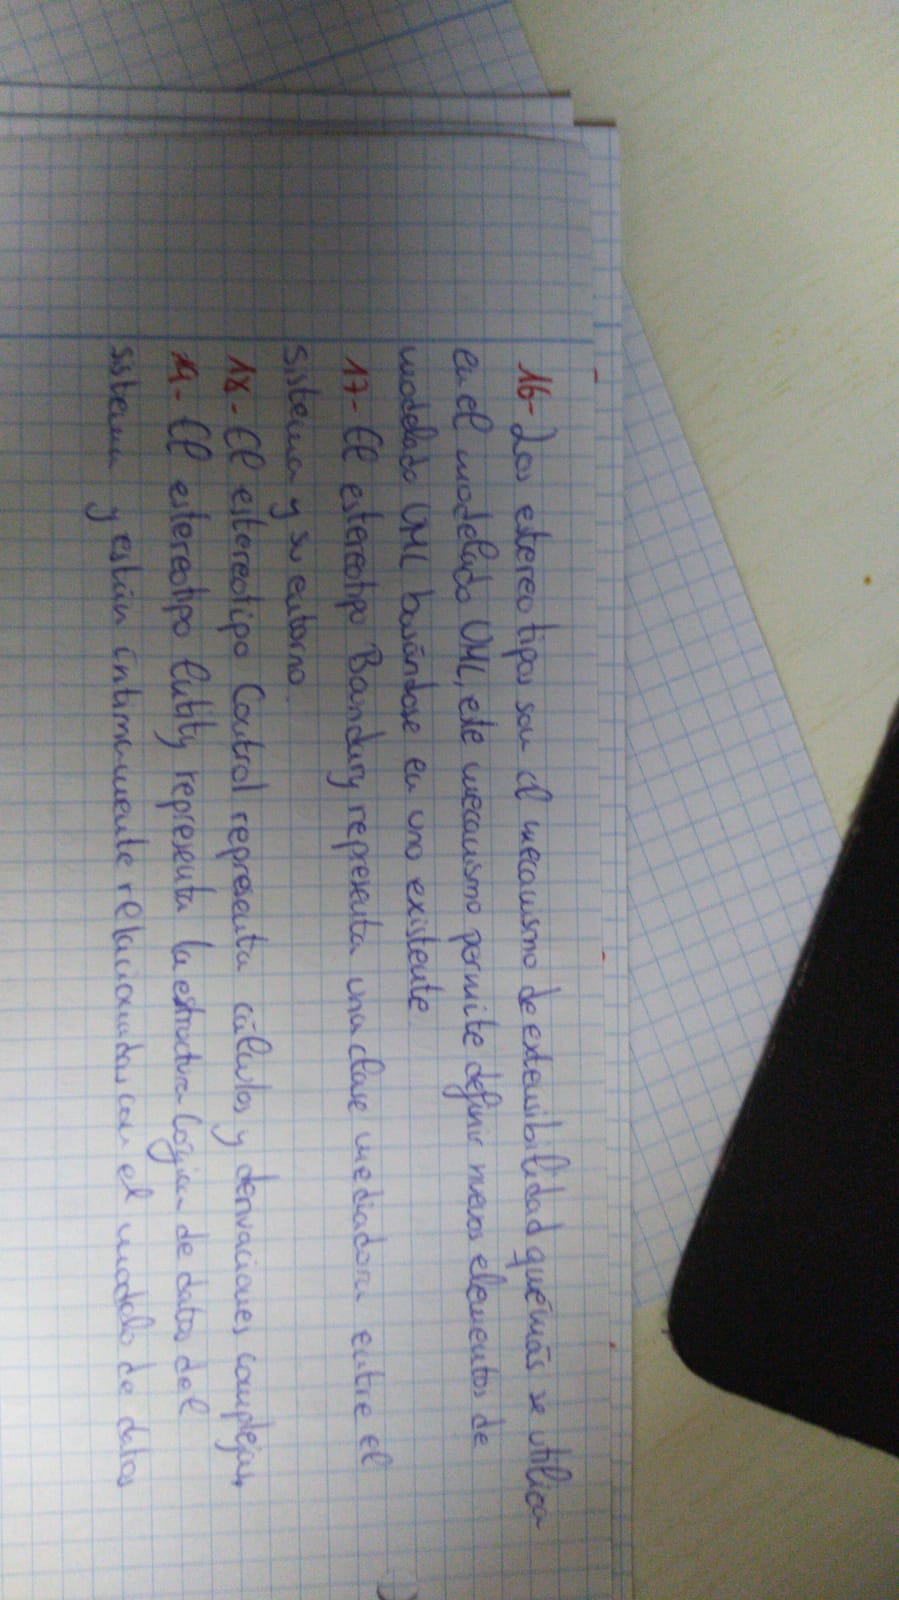 16- Los estereotipos son el mecanismo de extensibilidad que más se utiliza
en el modelado UML, este mecanismo permite definir nuevos elementos de
modelado UML basándose en uno existente
17- El estereotipo Boundary representa una clase mediadora entre el
sistema y su entorno.
18- El estereotipo Control representa cálculos y derivaciones complejas.
19- El estereotipo Entity representa la estructura lógica de datos del
sistema y están íntimamente relacionadas con el modelo de datos